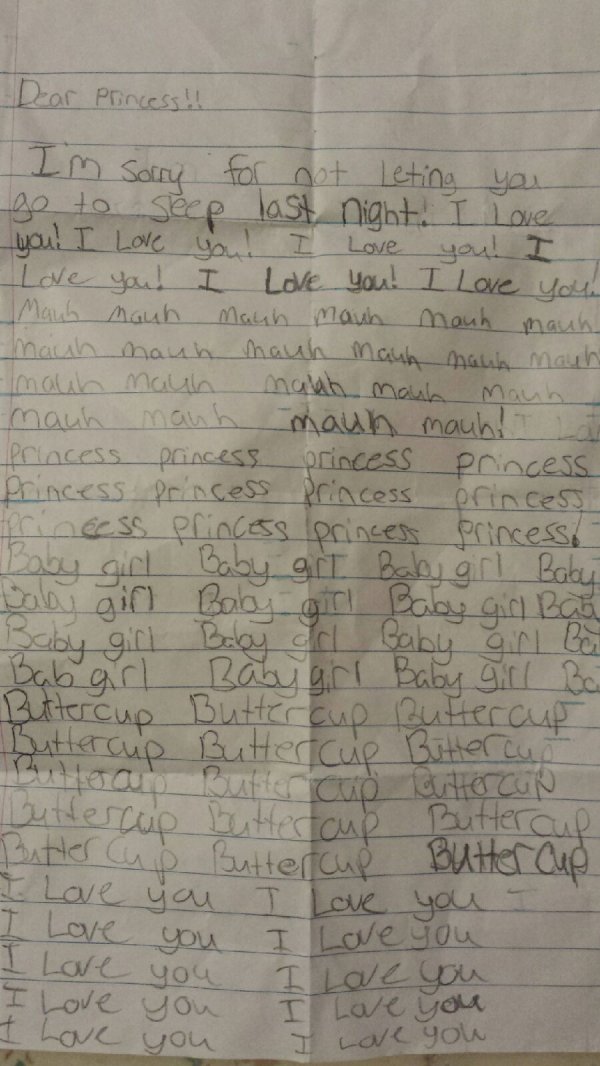 Dear Princess!!
I'm sorry for not leting you
go to sleep last night! I Love
you! I Love you! I Love you! I
Love you! I Love you! I Love you!
Mauh mauh mauh mauh mauh mauh
mauh mauh mauh mauh mauh mauh
mauh mauh mauh mauh mauh
mauh mauh mauh mauh!
princess princess princess princess
princess princess princess princess
princess princess princess princess!
Baby girl Baby girl Baby girl Baby
Baby girl Baby girl Baby girl Bab
Baby girl Baby girl Baby girl Ba
Bab girl Baby girl Baby girl Ba
Buttercup Buttercup Buttercup
Buttercup Buttercup Buttercup
Buttercup Buttercup Buttercup
Buttercup Buttercup Buttercup
Buttercup Buttercup Buttercup
I Love you I Love you I
I Love you I Love you
I Love you I Love you
I Love you I Love you
I Love you I Love you